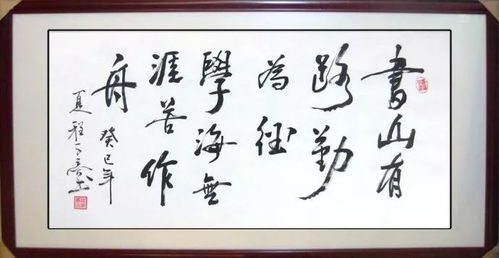 書山有
路勤
為徑
學海無
涯苦作
舟
癸巳年
夏程